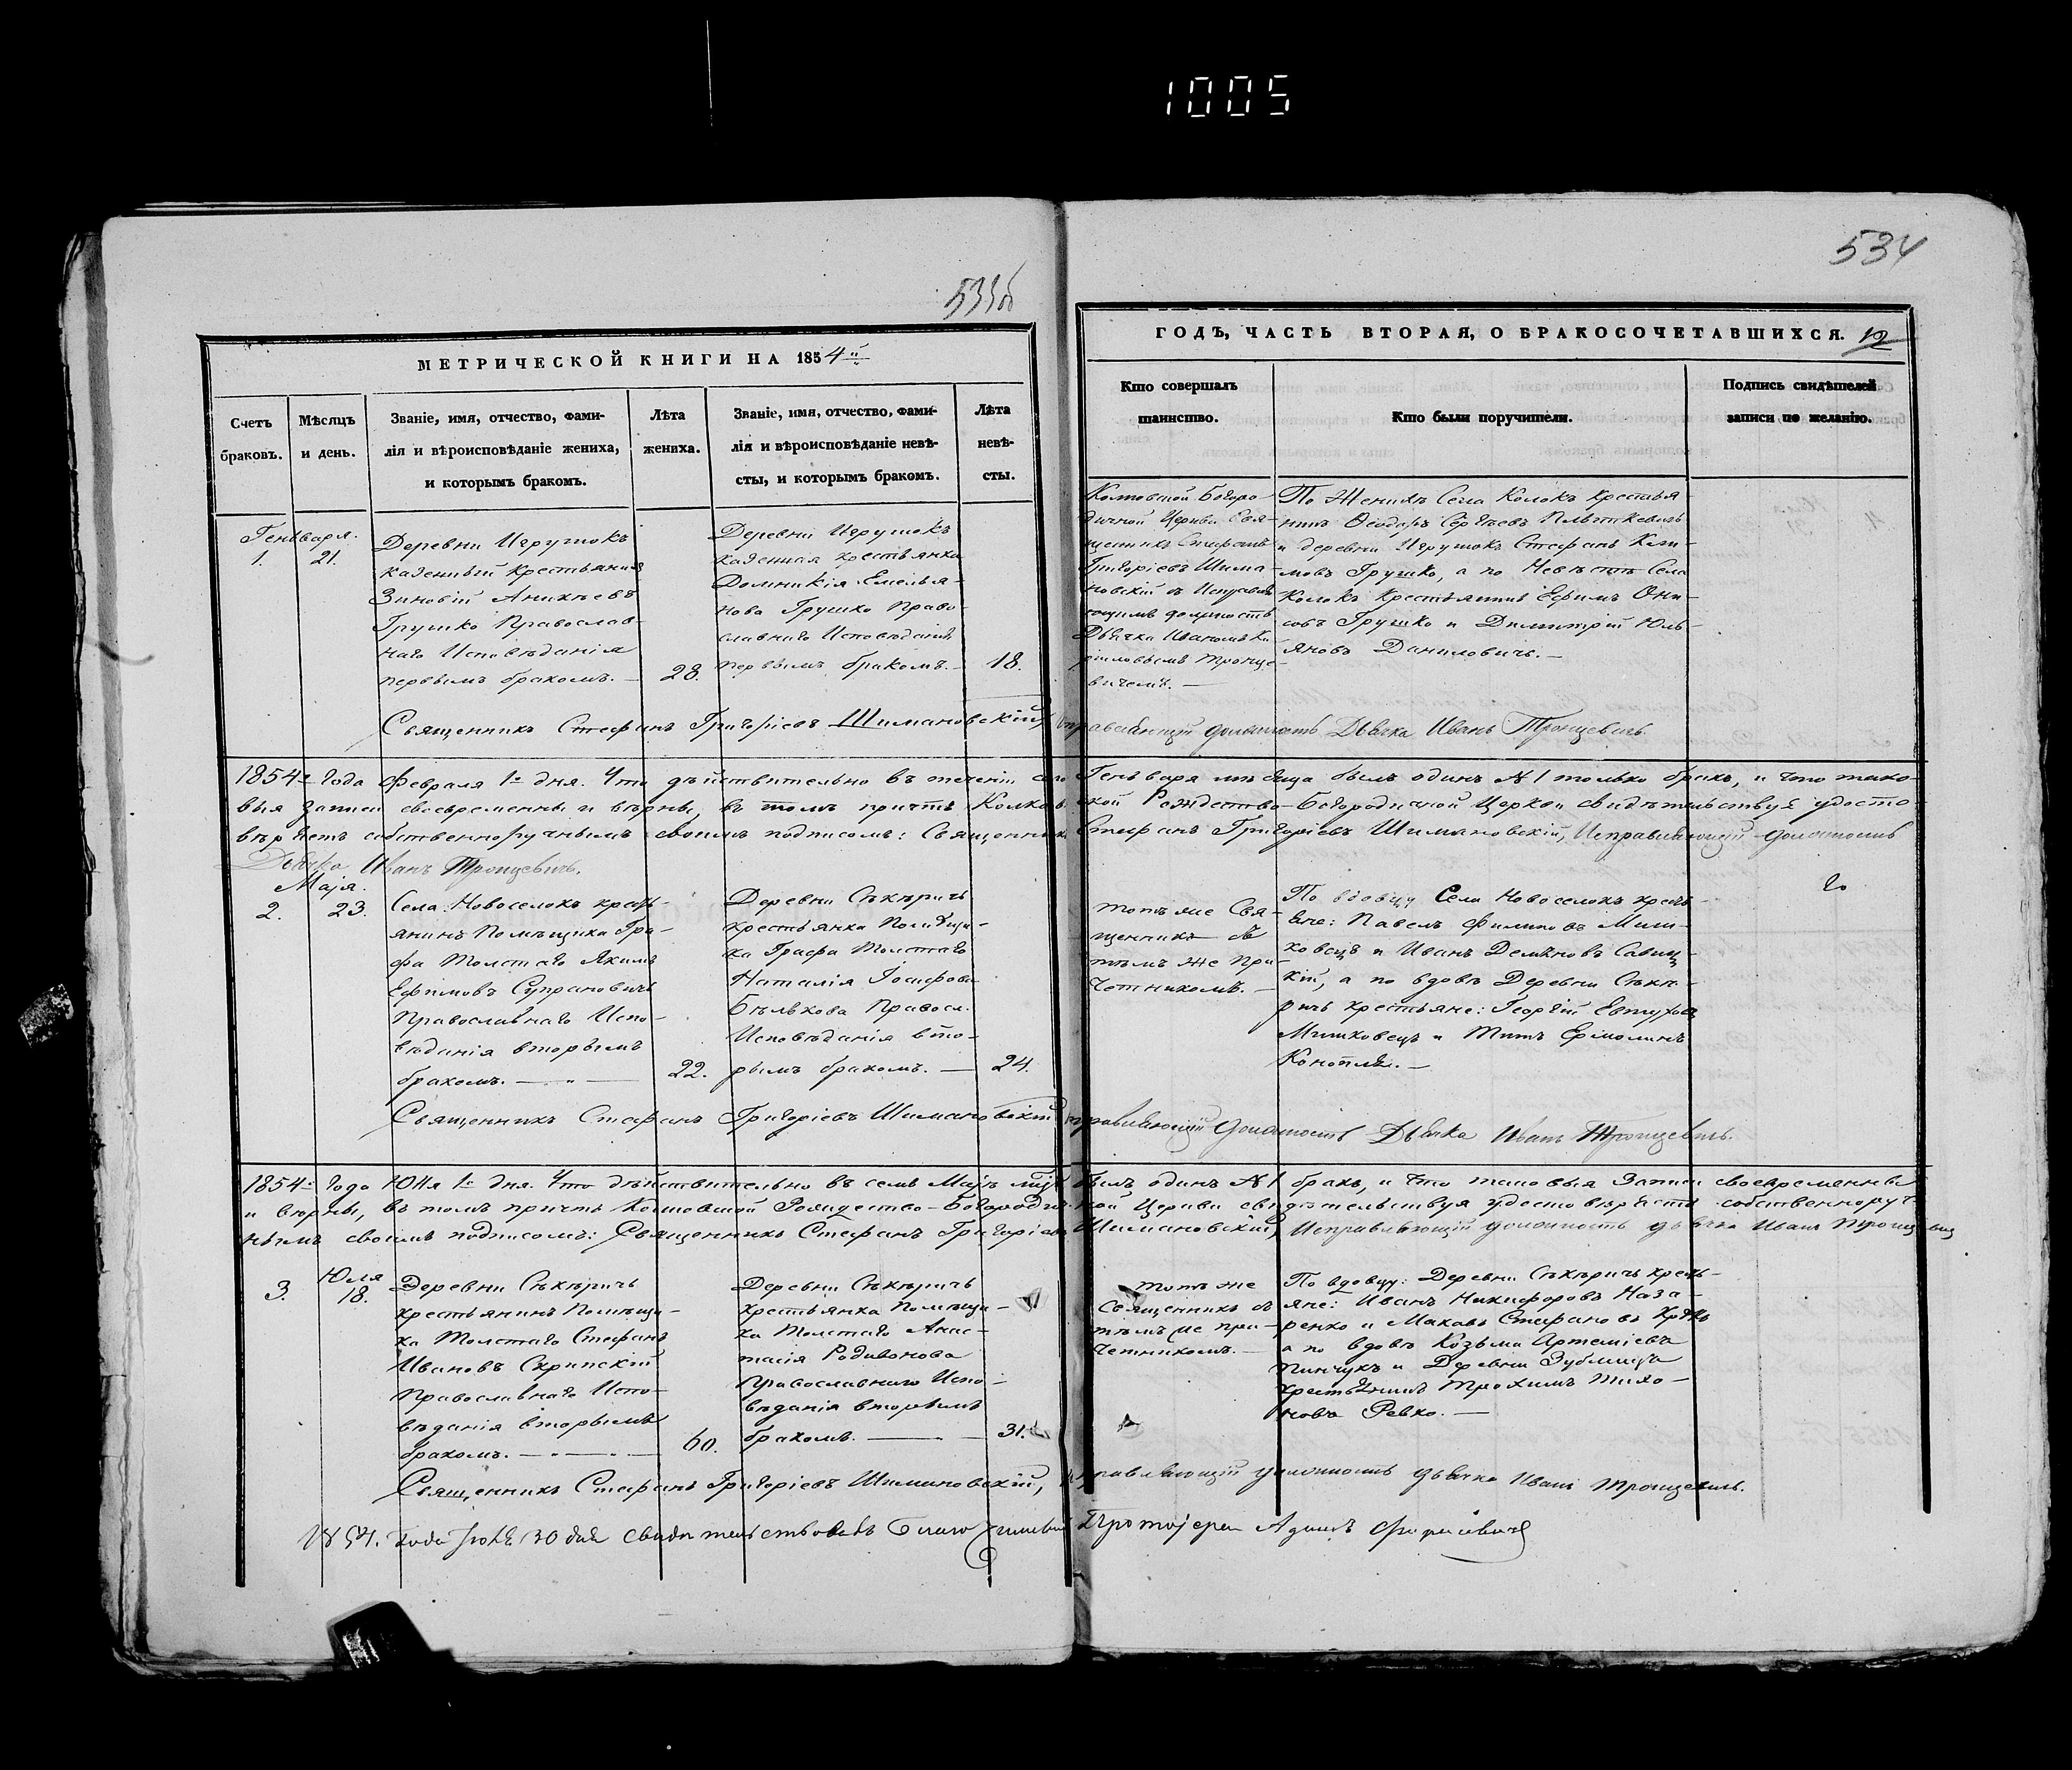 1005
534
533об
МЕТРИЧЕСКОЙ КНИГИ НА 1854й
Счетъ браковъ.
Мѣсяцъ и день.
Званіе, имя, отчество, фами-
лія и вѣроисповѣданіе жениха,
и которымъ бракомъ.
Лѣта жениха.
Званіе, имя, отчество, фами-
лія и вѣроисповѣданіе невѣ-
сты, и которымъ бракомъ.
Лѣта невѣ-
сты.
ГОДЪ, ЧАСТЬ ВТОРАЯ, О БРАКОСОЧЕТАВШИХСЯ. 12
Кто совершалъ
таинство.
Кто были поручители.
Подпись свидѣтелей
записи по желанію.
Генваря.
1. 21.
Деревни Игрушокъ
казенный крестьянинъ
Зиновій Аникѣевъ
Грушко Православ-
наго Исповѣданія
первымъ бракомъ. —
28.
Деревни Игрушокъ
казенная крестьянка
Домникія Емелья-
нова Грушко Право-
славнаго Исповѣданія
первымъ бракомъ. —
18.
Богоро-
дичной Церкви Свя-
щенникъ Стефанъ
Григоріевъ Шима-
новскій съ Исправля-
ющимъ должность
Дьячка Иваномъ Ки-
риловымъ Тронце-
вичемъ. —
По Женихѣ Села Колокъ крестья-
нинъ Ѳеодоръ Сергѣевъ
и деревни Игрушокъ Стефанъ Кли-
мовъ Грушко, а по Невѣстѣ Села
Колокъ Крестьянинъ Ефимъ Они-
совъ Грушко и Димитрій Юль-
яновъ Даниловичъ. —
Священникъ Стефанъ Григоріевъ Шимановскій, Исправляющій должность Дьячка Иванъ Тронцевичъ
1854го Года Февраля 1го дня. Что дѣйствительно въ теченіи сего Генваря мѣсяца былъ одинъ №1 только бракъ, и что тако-
выя записи своевременны и вѣрны, въ томъ причтъ Колковской Рождество-Богородичной Церкви свидѣтельствуя удосто-
вѣряетъ собственноручнымъ своимъ подписомъ: Священникъ Стефанъ Григоріевъ Шимановскій, Исправляющій должность
Дьячка Иванъ Тронцевичъ.
Маія.
2. 23.
Села Новоселокъ кресть-
янинъ Помѣщика Гра-
фа Толстаго Якимъ
Ефимовъ Супрановичъ
Православнаго Испо-
вѣданія вторымъ
бракомъ. —
22.
Деревни Сѣкѣричъ
крестьянка Помѣщи-
ка Графа Толстаго
Наталія Іосифова
Бѣлькова Правосл.
Исповѣданія вто-
рымъ бракомъ. —
24.
тотъ же Свя-
щенникъ съ
тѣмъ же При-
четникомъ. —
По вдовцу Села Новоселокъ кресть-
яне: Павелъ Филиповъ
и Иванъ Демяновъ Савиц-
кій, а по вдовѣ Деревни Сѣкѣ-
ричъ крестьяне: Георгій Евтуховъ
Мишковецъ и Титъ Ермолинъ
Конопля. —
Священникъ Стефанъ Григоріевъ Шимановскій, Исправляющій должность Дьячка Иванъ Тронцевичъ.
1854го Года Юня 1го дня. Что дѣйствительно въ семъ Маіѣ мѣсяцѣ былъ одинъ №1 бракъ, и что таковыя Записи своевременны
и вѣрны, въ томъ причтъ Колковской Рождество-Богородичной Церкви свидѣтельствуя удостовѣряетъ собственноруч-
нымъ своимъ подписомъ: Священникъ Стефанъ Григоріевъ Шимановскій, Исправляющій должность дьячка Иванъ Тронцевичъ
Юля
3. 18.
Деревни Сѣкѣричъ
крестьянинъ Помѣщи-
ка Толстаго Стефанъ
Ивановъ Скрипскій
Православнаго Испо-
вѣданія вторымъ
бракомъ. —
60.
Деревни Сѣкѣричъ
крестьянка Помѣщи-
ка Толстаго Анас-
тасія Родивонова
Православнаго Испо-
вѣданія вторымъ
бракомъ. —
31.
тотъ же
Священникъ съ
тѣмъ же При-
четникомъ. —
По вдовцу: Деревни Сѣкѣричъ кресть-
яне: Иванъ Никифоровъ Наза-
ренко и Стефановъ
а по вдовѣ Козьма Артеміевъ
Пинчукъ и Деревни
крестьянинъ Трохимъ Тихо-
новъ Ревко. —
Священникъ Стефанъ Григоріевъ Шимановскій, Исправляющій должность дьячка Иванъ Тронцевичъ.
1854. Года 30 дня свидѣтельствовалъ Благочинный Протоіерей Адамъ